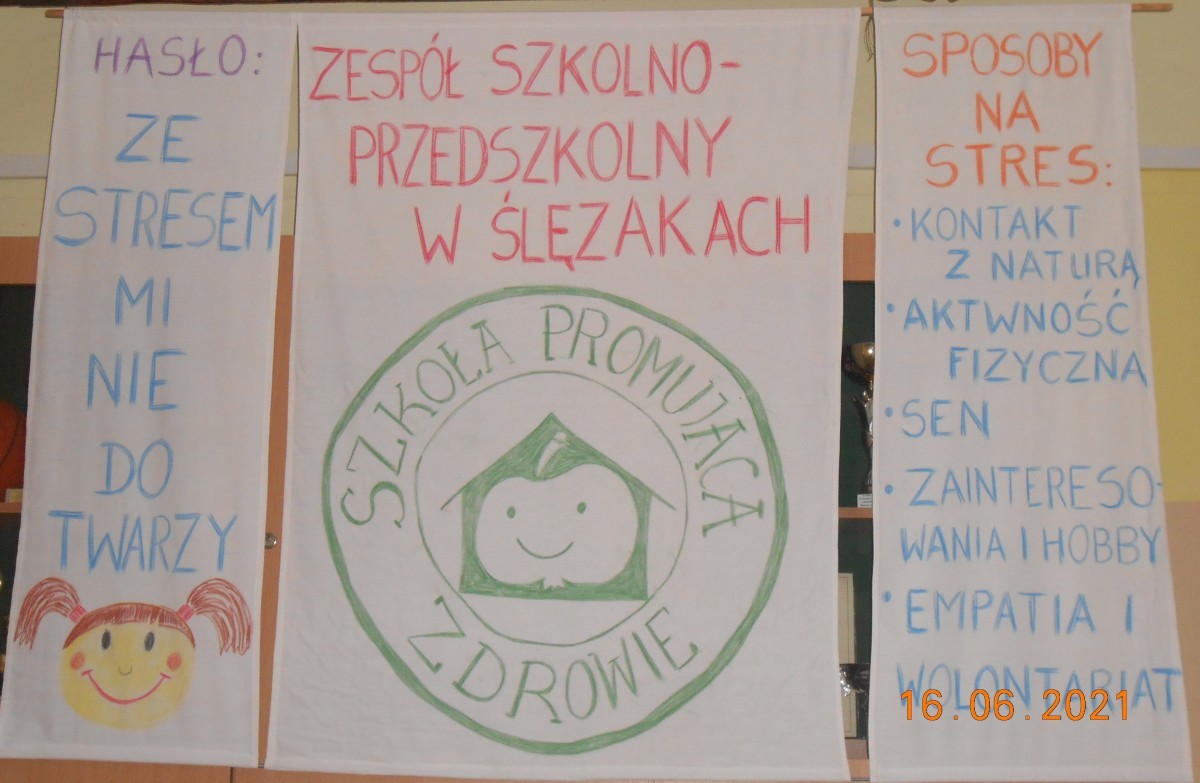 HASŁO:
ZE
STRESEM
MI
NIE
DO
TWARZY
ZESPÓŁ SZKOLNO-
PRZEDSZKOLNY
W ŚLĘZAKACH
SZKOŁA PROMUJĄCA
ZDROWIE
SPOSOBY
NA
STRES:
• KONTAKT
Z NATURĄ
• AKTWNOŚĆ
FIZYCZNĄ
• SEN
• ZAINTERESO-
WANIA I HOBBY
• EMPATIA I
WOLONTARIAT
16.06.2021